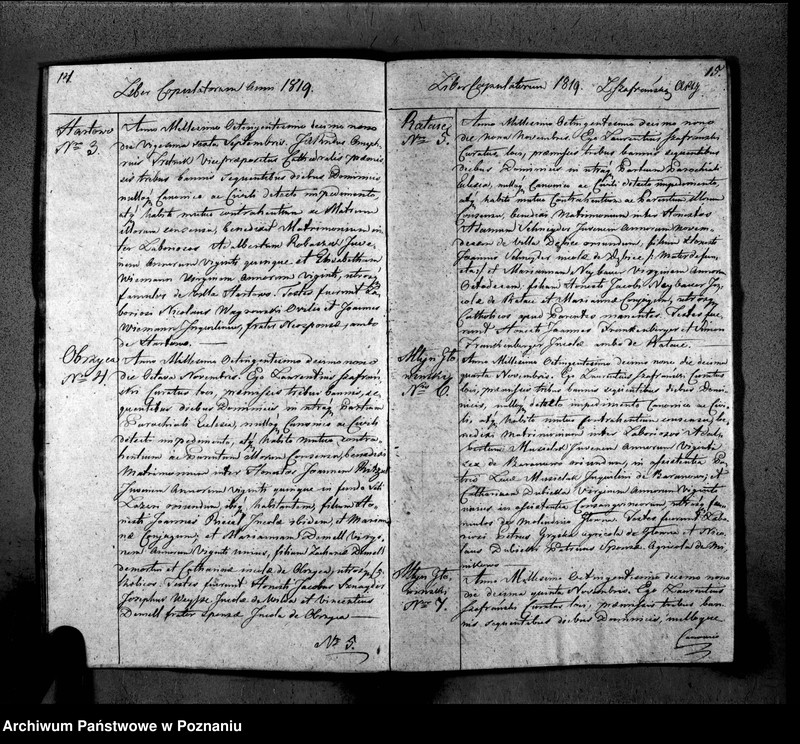 14.
Liber Copulatorum Anni 1819.
Hartowo
No 3.
Anno Millesimo Octingentesimo decimo nono
die Vigesima sexta Septembris.
Vicepraepositus Cathedralis praemis-
sis tribus bannis sequentibus diebus Dominicis
nulloq Canonico ac Civili detecto impedimento,
atq habito mutuo contrahentium ac Matrum
illorum consensu, benedixit Matrimonium in-
ter Laboriosos Adalbertum Juve-
nem Annorum Viginti quinque et Elisabetham
Wiemann Virginem Annorum Viginti, utrosq
famulos de Villa Hartowo. Testes fuerunt La-
boriosi Nicolaus et Joannes
Wiemann frater Neosponsae, ambo
de Hartowo.
Obrzyca
No 4.
Anno Millesimo Octingentesimo decimo nono
die Octava Novembris. Ego Laurentius Szafrań-
ski Curatus loci, praemissis tribus bannis, se-
quentibus diebus Dominicis in utraq Partium
Parochiali Ecclesia, nulloq Canonico ac Civili
detecto impedimento, atq habito mutuo contra-
hentium ac Parentum illorum Consensu, benedixi
Matrimonium inter Honestos Joannem
Juvenem Annorum Viginti quinque in fundo
Lazen oriundum, atq habitantem, filium Ho-
nesti Joannis Incolae ibidem, et Marian-
nae Conjugum, et Mariannam Demell Virgi-
nem Annorum Viginti unius, filiam Zachariae Demell
demortui et Catharinae incolae de Obrzyca, utrosq Ca-
tholicos. Testes fuerunt Honesti Jacobus
Josephus Incola de Wilda et Vincentius
Demell frater sponsae Incola de Obrzyca
No 5.
15.
Liber Copulatorum 1819.
Rataie
No 5.
Anno Millesimo Octingentesimo decimo nono
die nona Novembris. Ego Laurentius Szafrański
Curatus loci, praemissis tribus bannis sequentibus
diebus Dominicis in utraq Partium Parochiali
Ecclesia, nulloq Canonico ac Civili detecto impedimento,
atq habito mutuo Contrahentium ac Parentum illorum
Consensu, benedixi Matrimonium inter Honestos
Adamum Schneyder Juvenem Annorum Novem-
decem de Villa Dębiec oriundum, filium Honesti
Joannis Schneyder incolae de Dębiec
et Mariannam Naybauer Virginem Annorum
Octodecem, filiam Honesti Jacobi Naybauer In-
colae de Rataie et Mariannae Conjugum, utrosq
Catholicos apud Parentes manentes. Testes fue-
runt Honesti Joannes Franckenberger et Simon
Franckenberger Incolae ambo de Rataie.
No 6.
Anno Millesimo Octingentesimo decimo nono die decima
quarta Novembris. Ego Laurentius Szafrański Curatus
loci, praemissis tribus bannis sequentibus diebus Domi-
nicis, nulloq detecto impedimento Canonico ac Civi-
li, atq habito mutuo contrahentium consensu, be-
nedixi Matrimonium inter Laboriosos Adal-
bertum Musielak Juvenem Annorum Viginti
sex de Baranowo oriundum, in assistentia
et
Catharinam Dubielska Virginem Annorum Viginti
in assistentia Consanguineorum, utrosq fa-
mulos de Molendino Głowno. Testes fuerunt Labo-
riosi Petrus agricola de Głowno et Nico-
laus Dubielski Patruus Sponsae Agricola de
No 7.
Anno Millesimo Octingentesimo decimo nono
die decima quarta Novembris. Ego Laurentius
Szafrański Curatus loci, praemissis tribus ban-
nis, sequentibus diebus Dominicis, nulloque
Canonico
Archiwum Państwowe w Poznaniu